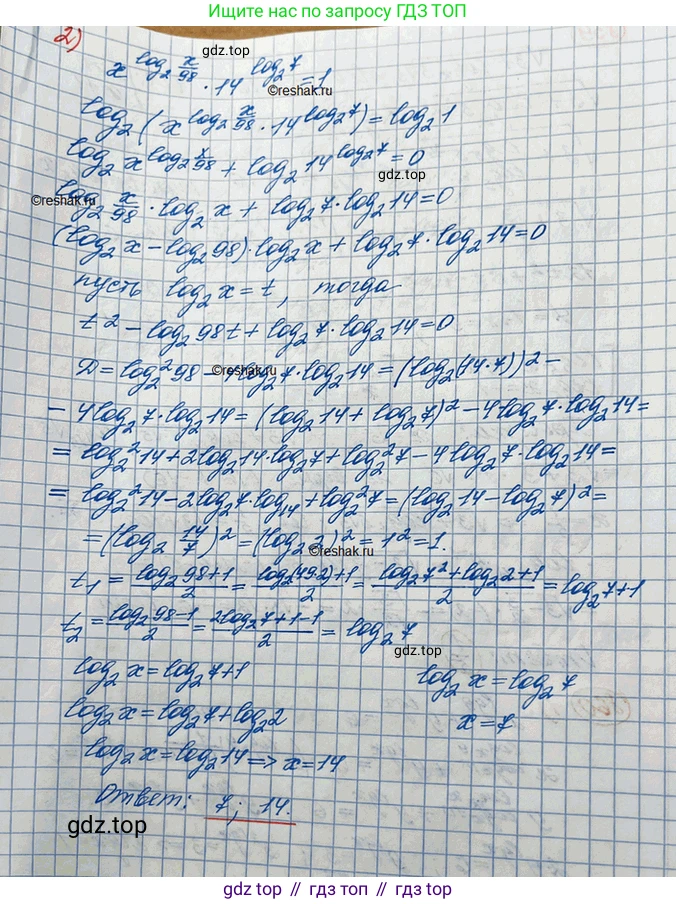 Ищите нас по запросу ГДЗ ТОП
2)
x^(log₂ x/98) · 14^(log₂ 7) = 1
gdz.top
©reshak.ru
log₂ ( x^(log₂ x/98) · 14^(log₂ 7) ) = log₂ 1
log₂ x^(log₂ x/98) + log₂ 14^(log₂ 7) = 0
gdz.top
©reshak.ru
log₂ x/98 · log₂ x + log₂ 7 · log₂ 14 = 0
(log₂ x − log₂ 98) · log₂ x + log₂ 7 · log₂ 14 = 0
пусть log₂ x = t, тогда
t² − log₂ 98 t + log₂ 7 · log₂ 14 = 0
Д = log₂² 98 − 4 log₂ 7 · log₂ 14 = (log₂ (14 · 7))² −
©reshak.ru
− 4 log₂ 7 · log₂ 14 = (log₂ 14 + log₂ 7)² − 4 log₂ 7 · log₂ 14 =
= log₂² 14 + 2 log₂ 14 · log₂ 7 + log₂² 7 − 4 log₂ 7 · log₂ 14 =
= log₂² 14 − 2 log₂ 7 · log₁₄ + log₂² 7 = (log₂ 14 − log₂ 7)² =
= (log₂ 14/7)² = (log₂ 2)² = 1² = 1.
©reshak.ru
t₁ = (log₂ 98 + 1)/2 = (log₂ (49·2) + 1)/2 = (log₂ 7² + log₂ 2 + 1)/2 = log₂ 7 + 1
t₂ = (log₂ 98 − 1)/2 = (2 log₂ 7 + 1 − 1)/2 = log₂ 7
gdz.top
log₂ x = log₂ 7 + 1
log₂ x = log₂ 7
log₂ x = log₂ 7 + log₂ 2
x = 7
log₂ x = log₂ 14 => x = 14
Ответ: 7; 14.
gdz.top
gdz top // гдз топ // gdz top